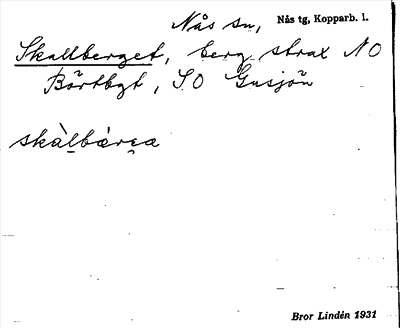 Nås sn, Nås tg, Kopparb. l.
Skallberget, berg strax NO
Börtbgt, SO Gusjön
skàlbǽrɛa
Bror Lindén 1931